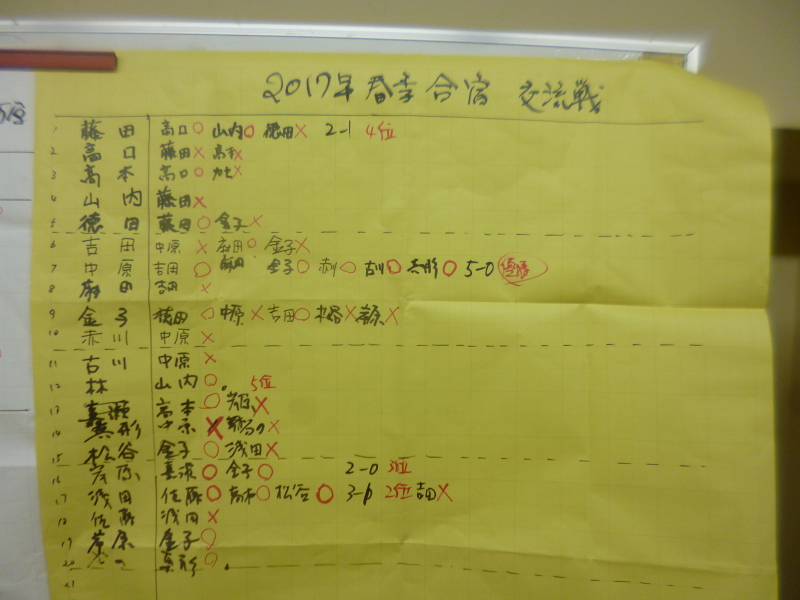 2017年春季合宿 交流戦
1 藤田 高口○ 山内○ 徳田× 2-1 4位
2 高口 藤田× 高本×
3 高本 高口○ ×
4 山内 藤田×
5 徳田 藤田○ 金子×
6 吉田 中原× ○ 金子×
7 中原 吉田○ 金子○ 赤川○ 古川○ 真形○ 5-0 優勝
8 吉田×
9 金子 徳田○ 中原× 吉田○ 松谷× ×
10 赤川 中原×
11 古川 中原×
12 林 山内○. 5位
13 高本○ ×
14 真形 中原× ×
15 松谷 金子○ 浅田×
16 ○ 金子○ 2-0 3位
17 浅田 佐藤○ 高本○ 松谷○ 3-1 2位 吉田×
18 佐藤 浅田×
19 金子○
20 真形○.
21